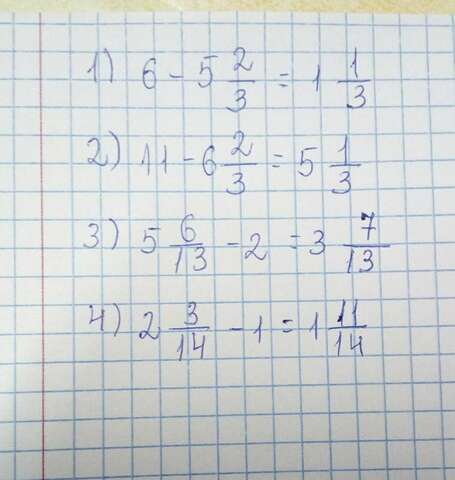 1) 6 - 5 2/3 = 1 1/3
2) 11 - 6 2/3 = 5 1/3
3) 5 6/13 - 2 = 3 7/13
4) 2 3/14 - 1 = 1 11/14